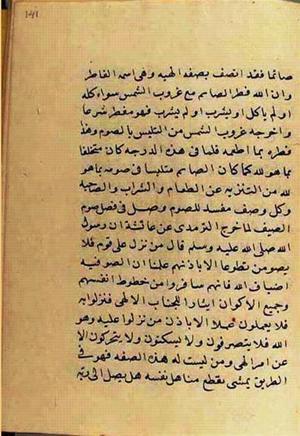 صائما فقد اتصف بصفه الهيه وهى اسمه الفاطر
وان الله فطر الصائم مع غروب الشمس سواء اكله
او لم ياكل او يشرب او لم يشرب فهو مفطر شرعا
واخرجه غروب الشمس من التلبس بالصوم وهذا
فطره بما اطعمه فلما فى هذه الدرجه كان متخلقا
بما هو لله كما كان الصائم متلبسا فى صومه بما هو
لله من التنزيه عن الطعام والشراب والصاحبة
وكل وصف مفسد للصوم وصل فى فضل صوم
الضيف لما خرج الترمذى عن عائشة ان رسول
الله صلى الله عليه وسلم قال من نزل على قوم فلا
يصومن تطوعا الا باذنهم علمنا ان الصوفيه
اضياف الله فانهم سافروا من حظوظ انفسهم
وجميع الاكوان ايثارا للجناب الالهى فنزلوا به
فلا يعملون عملا الا باذن من نزلوا عليه وهو
الله فلا يتصرفون ولا يسكنون ولا يتحركون الا
عن امر الهى ومن ليست له هذه الصفه فهو فى
الطريق يمشى يقطع مناهل نفسه هل يصل الى ربه